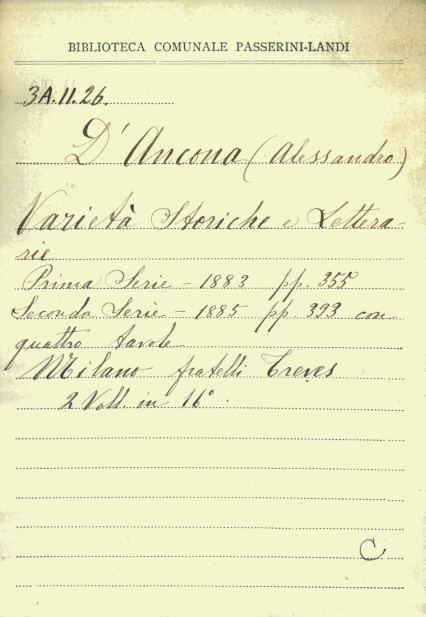 BIBLIOTECA COMUNALE PASSERINI-LANDI
3A.II.26.
D'Ancona (Alessandro)
Varietà Storiche e Lettera-
rie
Prima Serie - 1883 pp. 355
Seconda Serie - 1885 pp. 393 con
quattro tavole
Milano fratelli Treves
2 Voll. in 16°.
C